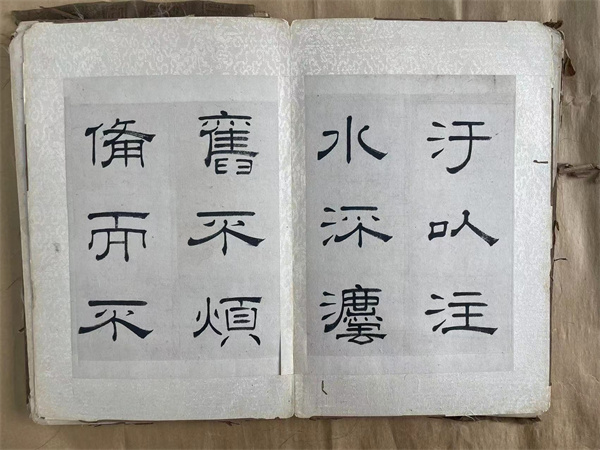 汙以注
水流灋
舊不煩
備而不